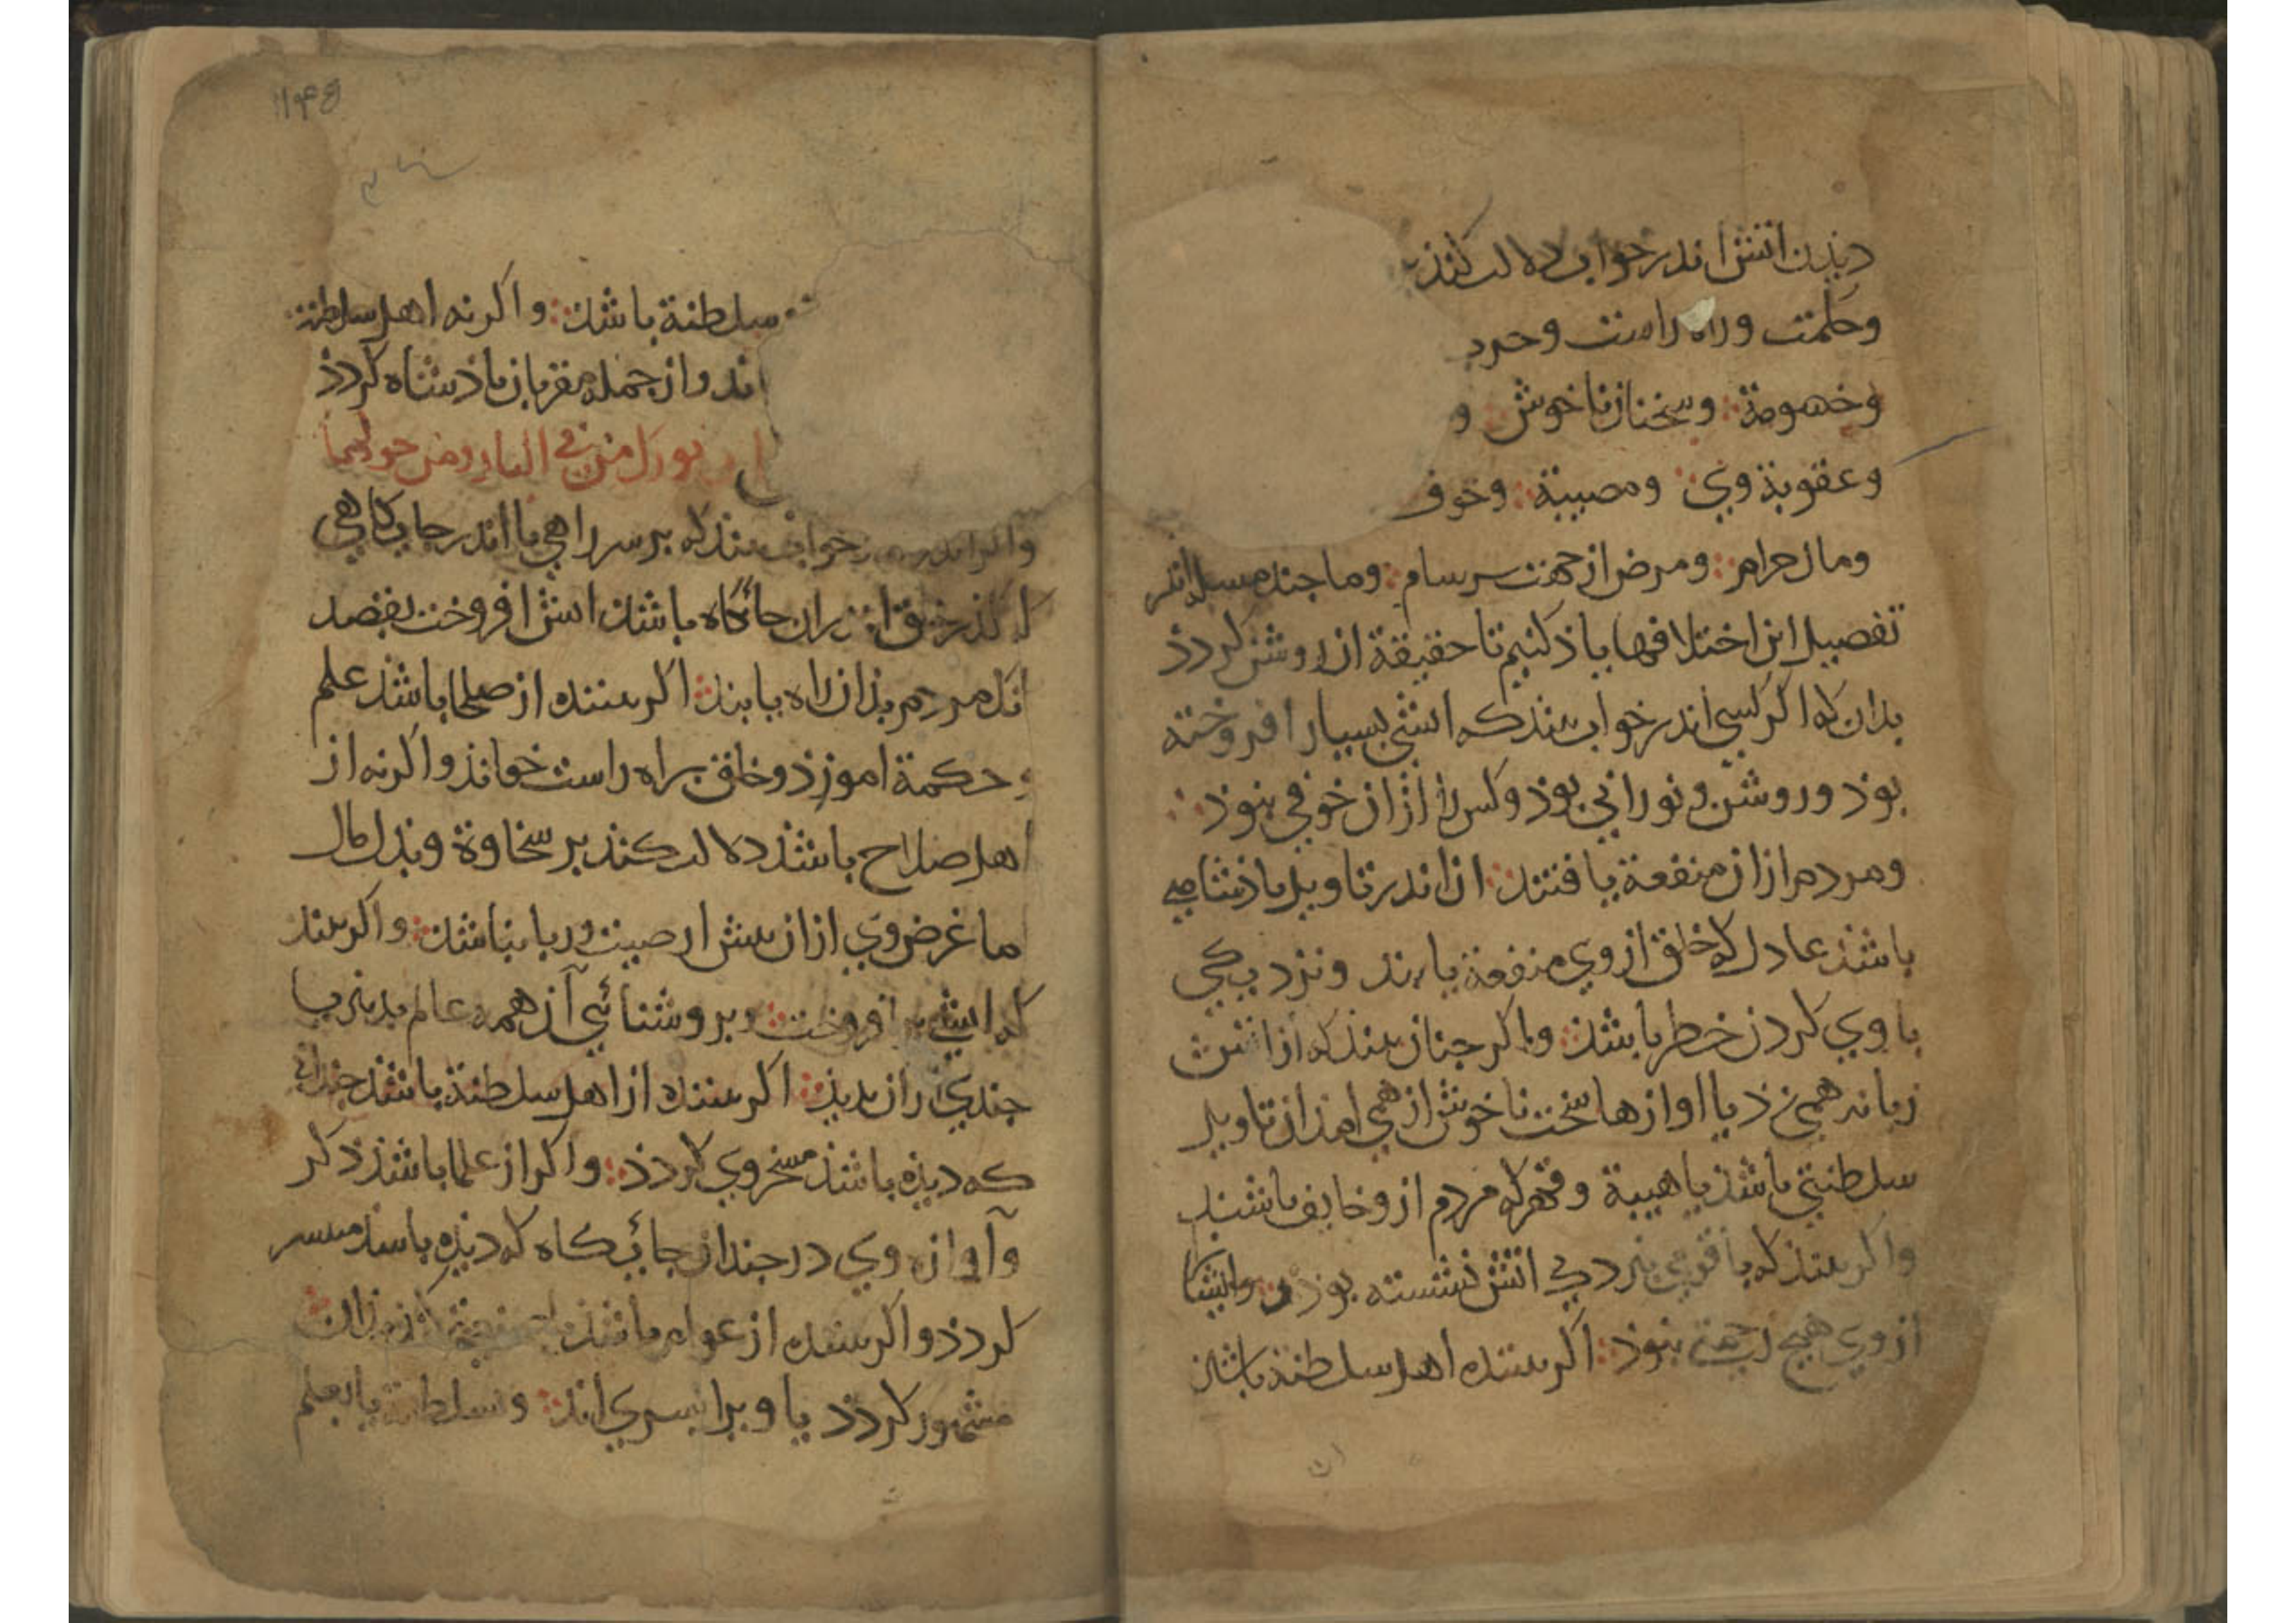 دیذن اتش اندر خواب دلالت کنذ بر
وحکمت وراه راست وخرد
وخصومة وسخنان ناخوش و
وعقوبة وی ومصیبة وخوف
ومال حرام ومرض از جهت سرسام وما جند مسله اندر
تفصیل این اختلافها یاذ کنیم تا حقیقة ان روشن کردذ
بدان که اکر کسی اندر خواب بیند که اتشی بسیار افروخته
بوذ وروشن ونورانی بوذ وکس را از ان خوفی نبوذ
ومردم از ان منفعة یافتند ان اندر تاویل باذشاهی
باشذ عادل که خلق از وی منفعة یابند ونزدیکی
با وی کردن خطر باشذ واکر جنان بیند که از اتش
زبانه همی زذ یا اوازها سخت ناخوش از همی امذ ان تاویل
سلطنتی باشذ با هیبة وقهر که مردم ازو خایف باشند
واکر بیند که با قومی نزدیک اتش نشسته بوذ وایشانرا
از وی هیچ زحمتی نبوذ اکر بیننده اهل سلطنة باشذ
۱۱۴۵
سلطنة باشذ واکر نه اهل سلطنة
اند واز جمله مقربان باذشاه کردذ
بورک من فی النار ومن حولها
خواب بیند که بر سر راهی یا اندر جایکاهی
جائکاه باشذ اتش افروخت بقصد
انک مردم بذان راه یابند اکر بیننده از صلحا باشذ علم
وحکمة اموزذ وخلق براه راست خواند واکر نه از
اهل صلاح باشذ دلالت کنذ بر سخاوة وبذل مال
اما غرض وی از ان بیش از صیت وریا نباشذ واکر بیند
که اتشی افروخت وبروشنائی آن همه عالم بدید یا
جندی از ان بدیذ اکر بیننده از اهل سلطنة باشذ جندان
که دیذه باشذ مسخر وی کردذ واکر از علما باشذ ذکر
وآوازه وی در جندان جائیکاه که دیذه باشذ میسر
کردذ واکر بیننده از عوام باشذ
مشهور کردذ یا ویرا بسری اید وسلطنة یا بعلم